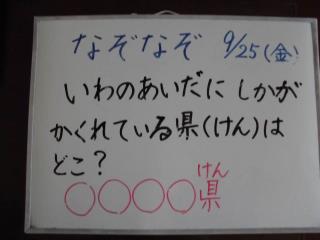 なぞなぞ 9/25(金)
いわのあいだに しかが
かくれている県(けん)は
どこ?
○○○○県(けん)